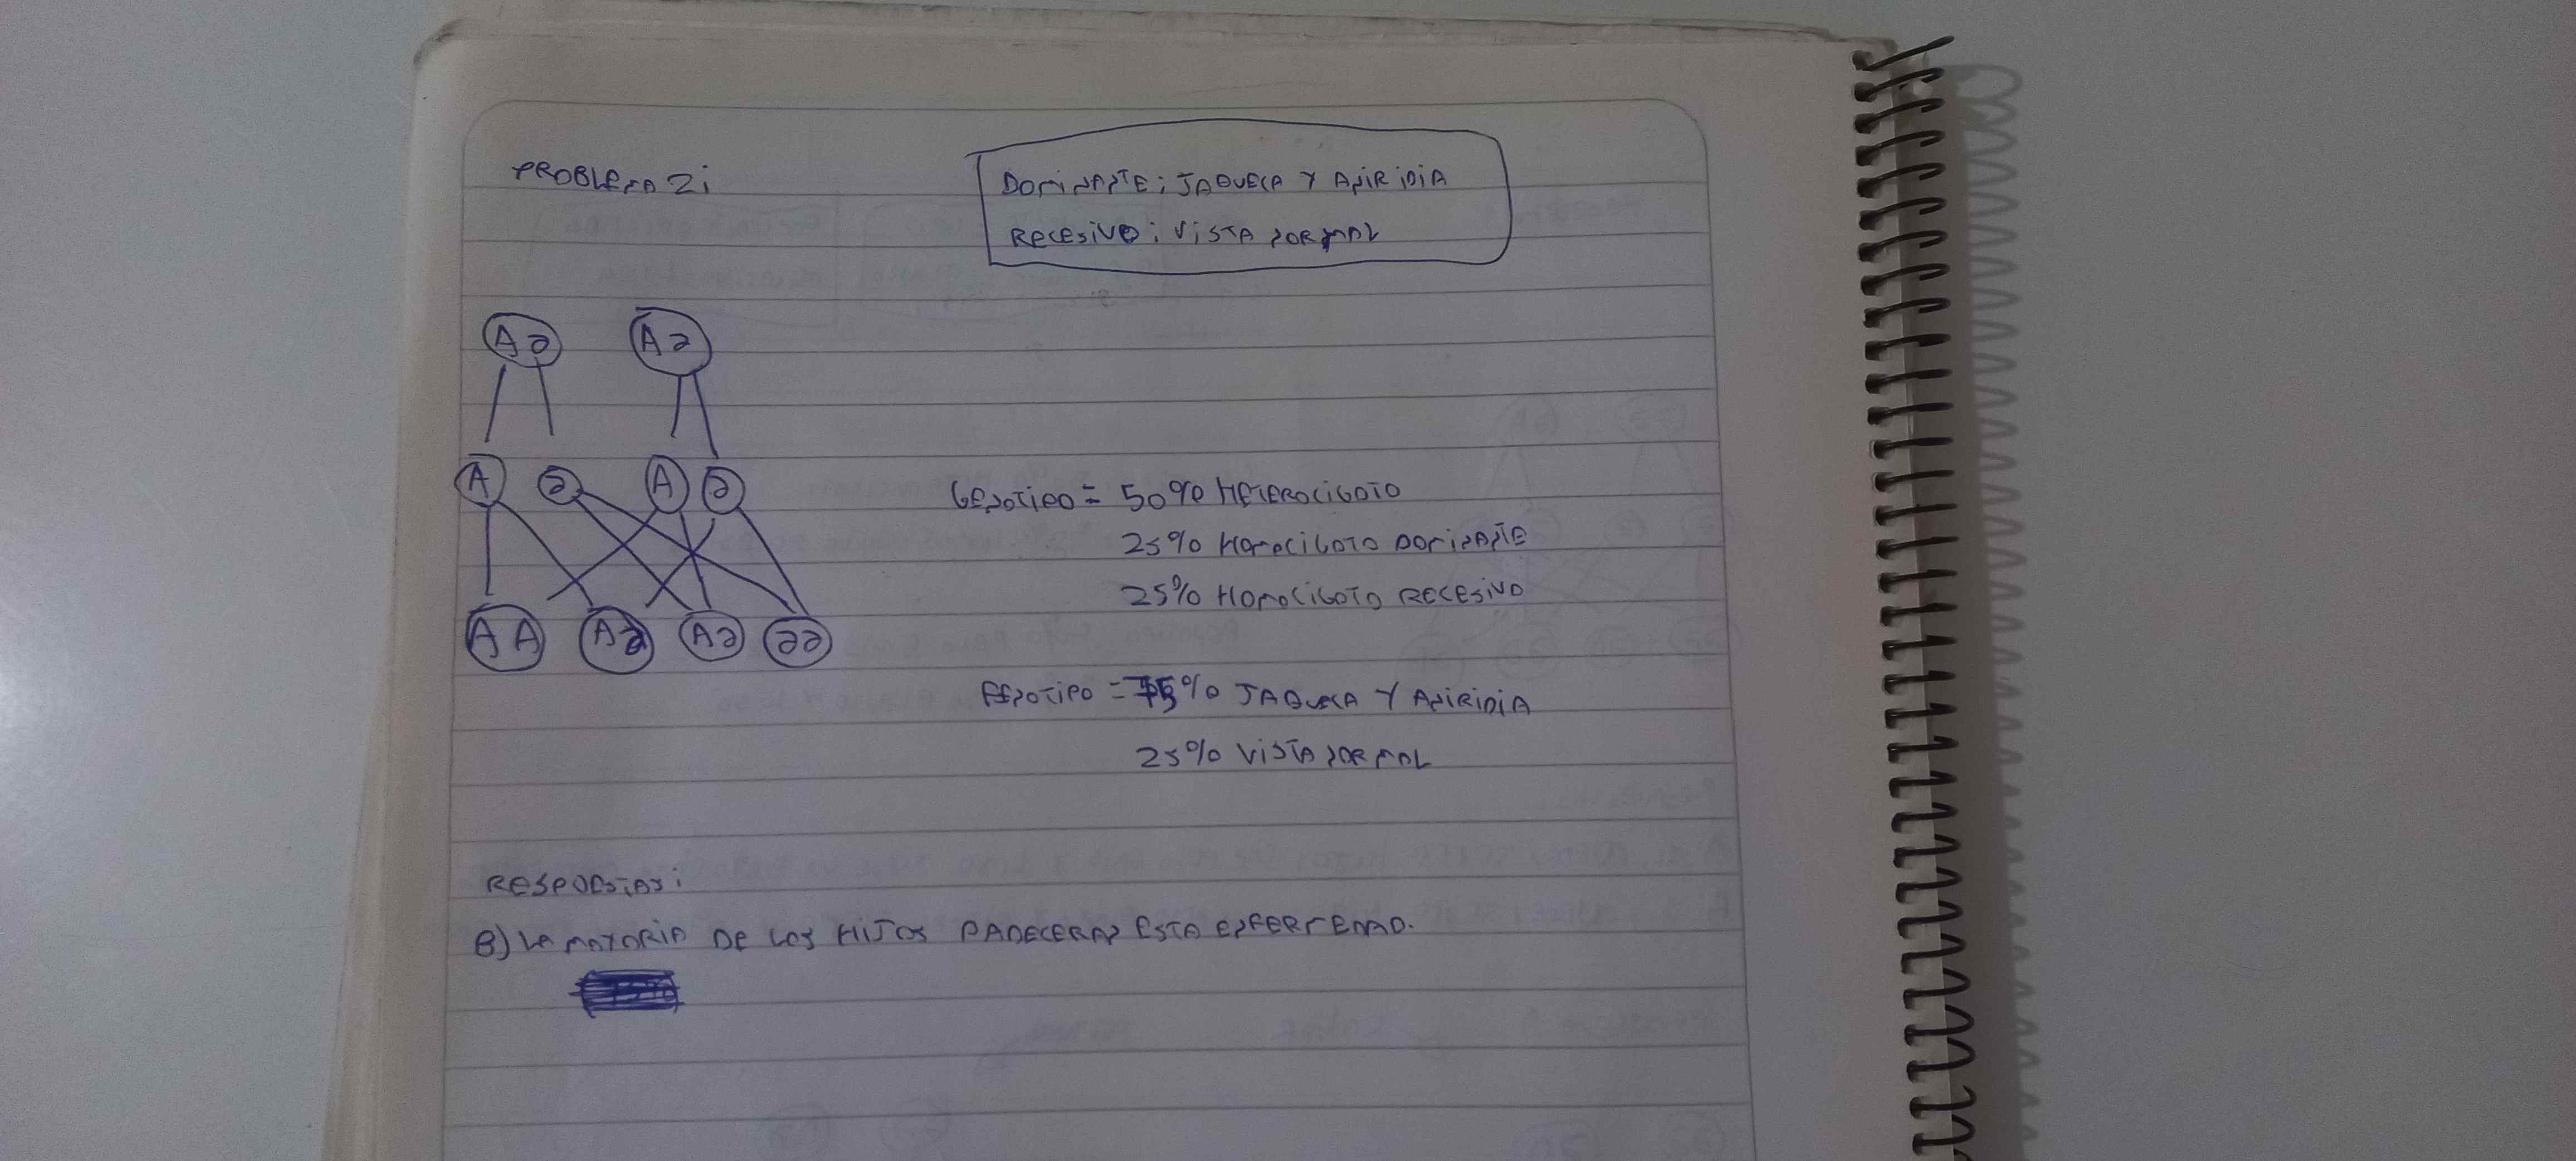 PROBLEMA 2:
DOMINANTE: JAQUECA Y ANIRIDIA
RECESIVO: VISTA NORMAL
Aa Aa
A a A a
AA Aa Aa aa
GENOTIPO = 50% HETEROCIGOTO
25% HOMOCIGOTO DOMINANTE
25% HOMOCIGOTO RECESIVO
FENOTIPO = 75% JAQUECA Y ANIRIDIA
25% VISTA NORMAL
RESPUESTAS:
B) LA MAYORIA DE LOS HIJOS PADECERAN ESTA ENFERMEDAD.